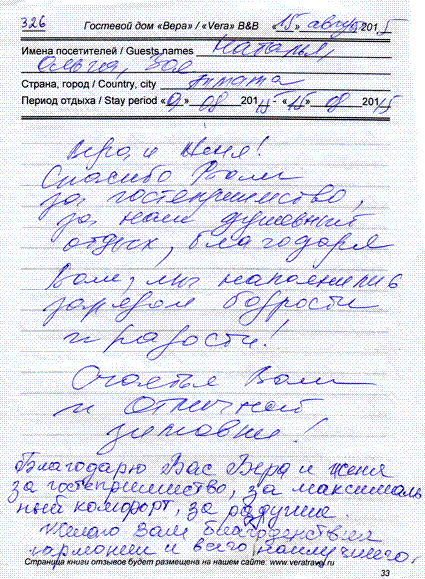 326 Гостевой дом «Вера» / «Vera» B&B «15» август 2015
Имена посетителей / Guests names Наталья,
Ольга, Зоя
Страна, город / Country, city Алмата
Период отдыха / Stay period «9» 08 2015 - «15» 08 2015
Вера и Женя!
Спасибо Вам
за гостеприимство,
за наш душевный
отдых, благодаря
Вам, мы наполнились
зарядом бодрости
и радости!
Счастья Вам
и отличной
зимовки!
Благодарю Вас Вера и Женя
за гостеприимство, за максималь
ный комфорт, за радушие.
Желаю Вам благоденствия
гармонии и всего наилучшего.
Страница книги отзывов будет размещена на нашем сайте: www.veratravel.ru
33